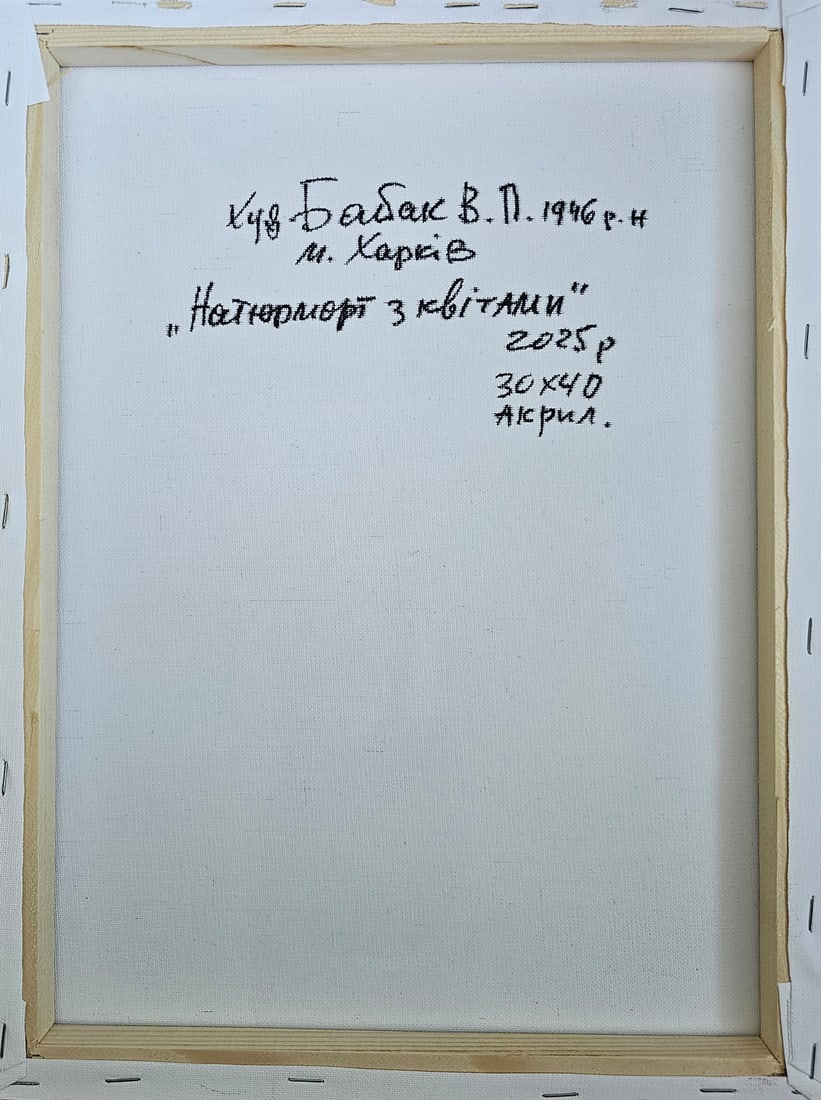 Худ Бабак В.П. 1946 р.н
м. Харків
„Натюрморт з квітами"
2025р
30х40
Акрил.